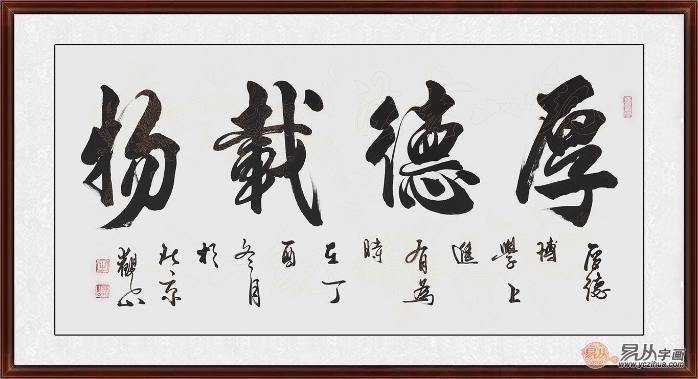 厚德載物
厚德
博
學上
進
有為
時
在丁
酉
冬月
於
北京
易从字画
www.yczihua.com